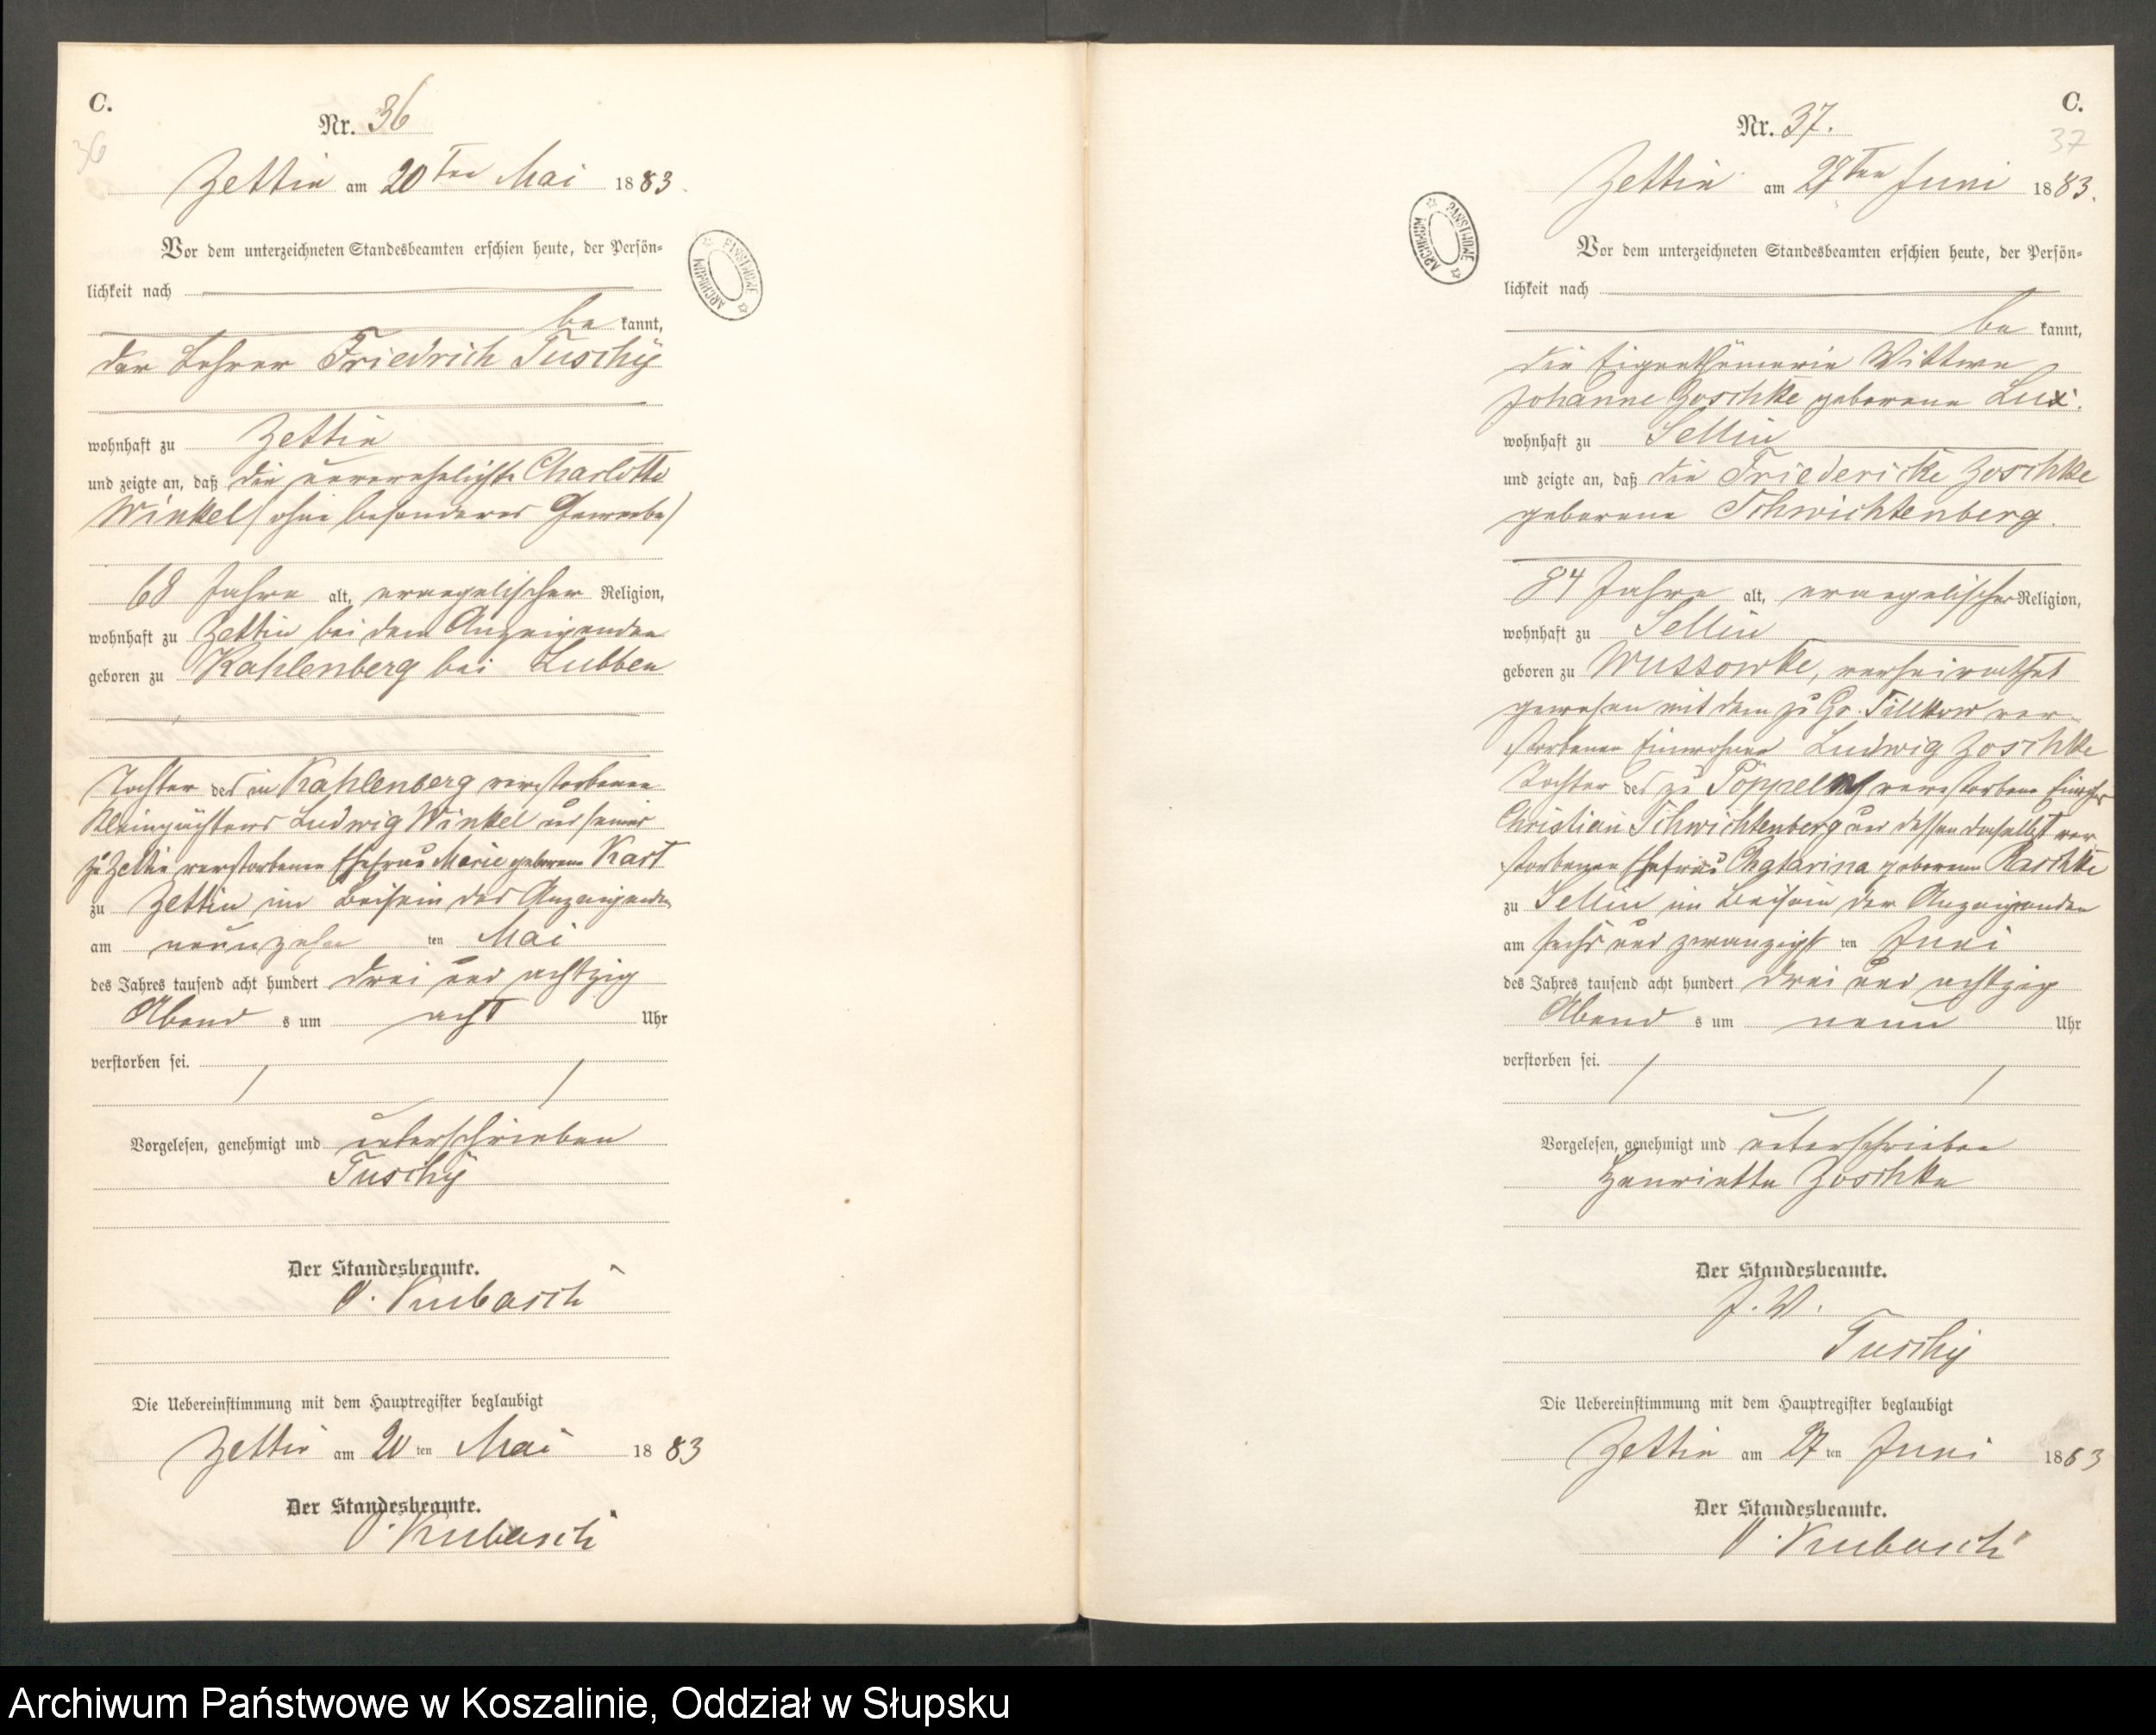 C.
36
Nr. 36
Zettin am 20ten Mai 1883.
Vor dem unterzeichneten Standesbeamten erschien heute, der Persön-
lichkeit nach
be kannt,
der Lehrer Friedrich Tuschÿ
wohnhaft zu Zettin
und zeigte an, daß die unverehelichte Charlotte
Winkel (ohne besonderes Gewerbe)
68 Jahre alt, evangelischer Religion,
wohnhaft zu Zettin bei dem Anzeigenden
geboren zu Kahlenberg bei Lubben
Tochter des in Kahlenberg verstorbenen
Kleinpächters Ludwig Winkel und seiner
zu Zettin verstorbenen Ehefrau Marie geborene Kart
zu Zettin im Beisein des Anzeigenden
am neunzehn ten Mai
des Jahres tausend acht hundert drei und achtzig
Abend s um acht Uhr
verstorben sei.
Vorgelesen, genehmigt und unterschrieben
Tuschÿ
Der Standesbeamte.
Kubasch
Die Uebereinstimmung mit dem Hauptregister beglaubigt
Zettin am 20 ten Mai 1883
Der Standesbeamte.
Kubasch
ARCHIWUM PAŃSTWOWE
C.
37
Nr. 37.
Zettin am 27ten Juni 1883.
Vor dem unterzeichneten Standesbeamten erschien heute, der Persön-
lichkeit nach
be kannt,
die Eigenthümerin Wittwe
Johanne Zoschke geborene Lux.
wohnhaft zu Sellin
und zeigte an, daß die Friedericke Zoschke
geborene Schwichtenberg.
84 Jahre alt, evangelischer Religion,
wohnhaft zu Sellin
geboren zu Wussowke, verheirathet
gewesen mit dem zu Gr. Silkow ver-
storbenen Einwohner Ludwig Zoschke
Tochter des zu Pöppeln verstorbene Einwohner
Christian Schwichtenberg und dessen daselbst ver-
storbenen Ehefrau Chatarina geborene Raschke
zu Sellin im Beisein der Anzeigenden
am sechs und zwanzigst ten Juni
des Jahres tausend acht hundert drei und achtzig
Abend s um neun Uhr
verstorben sei.
Vorgelesen, genehmigt und unterschrieben
Henriette Zoschke
Der Standesbeamte.
J. V.
Tuschÿ
Die Uebereinstimmung mit dem Hauptregister beglaubigt
Zettin am 27 ten Juni 1883
Der Standesbeamte.
Kubasch
ARCHIWUM PAŃSTWOWE
Archiwum Państwowe w Koszalinie, Oddział w Słupsku